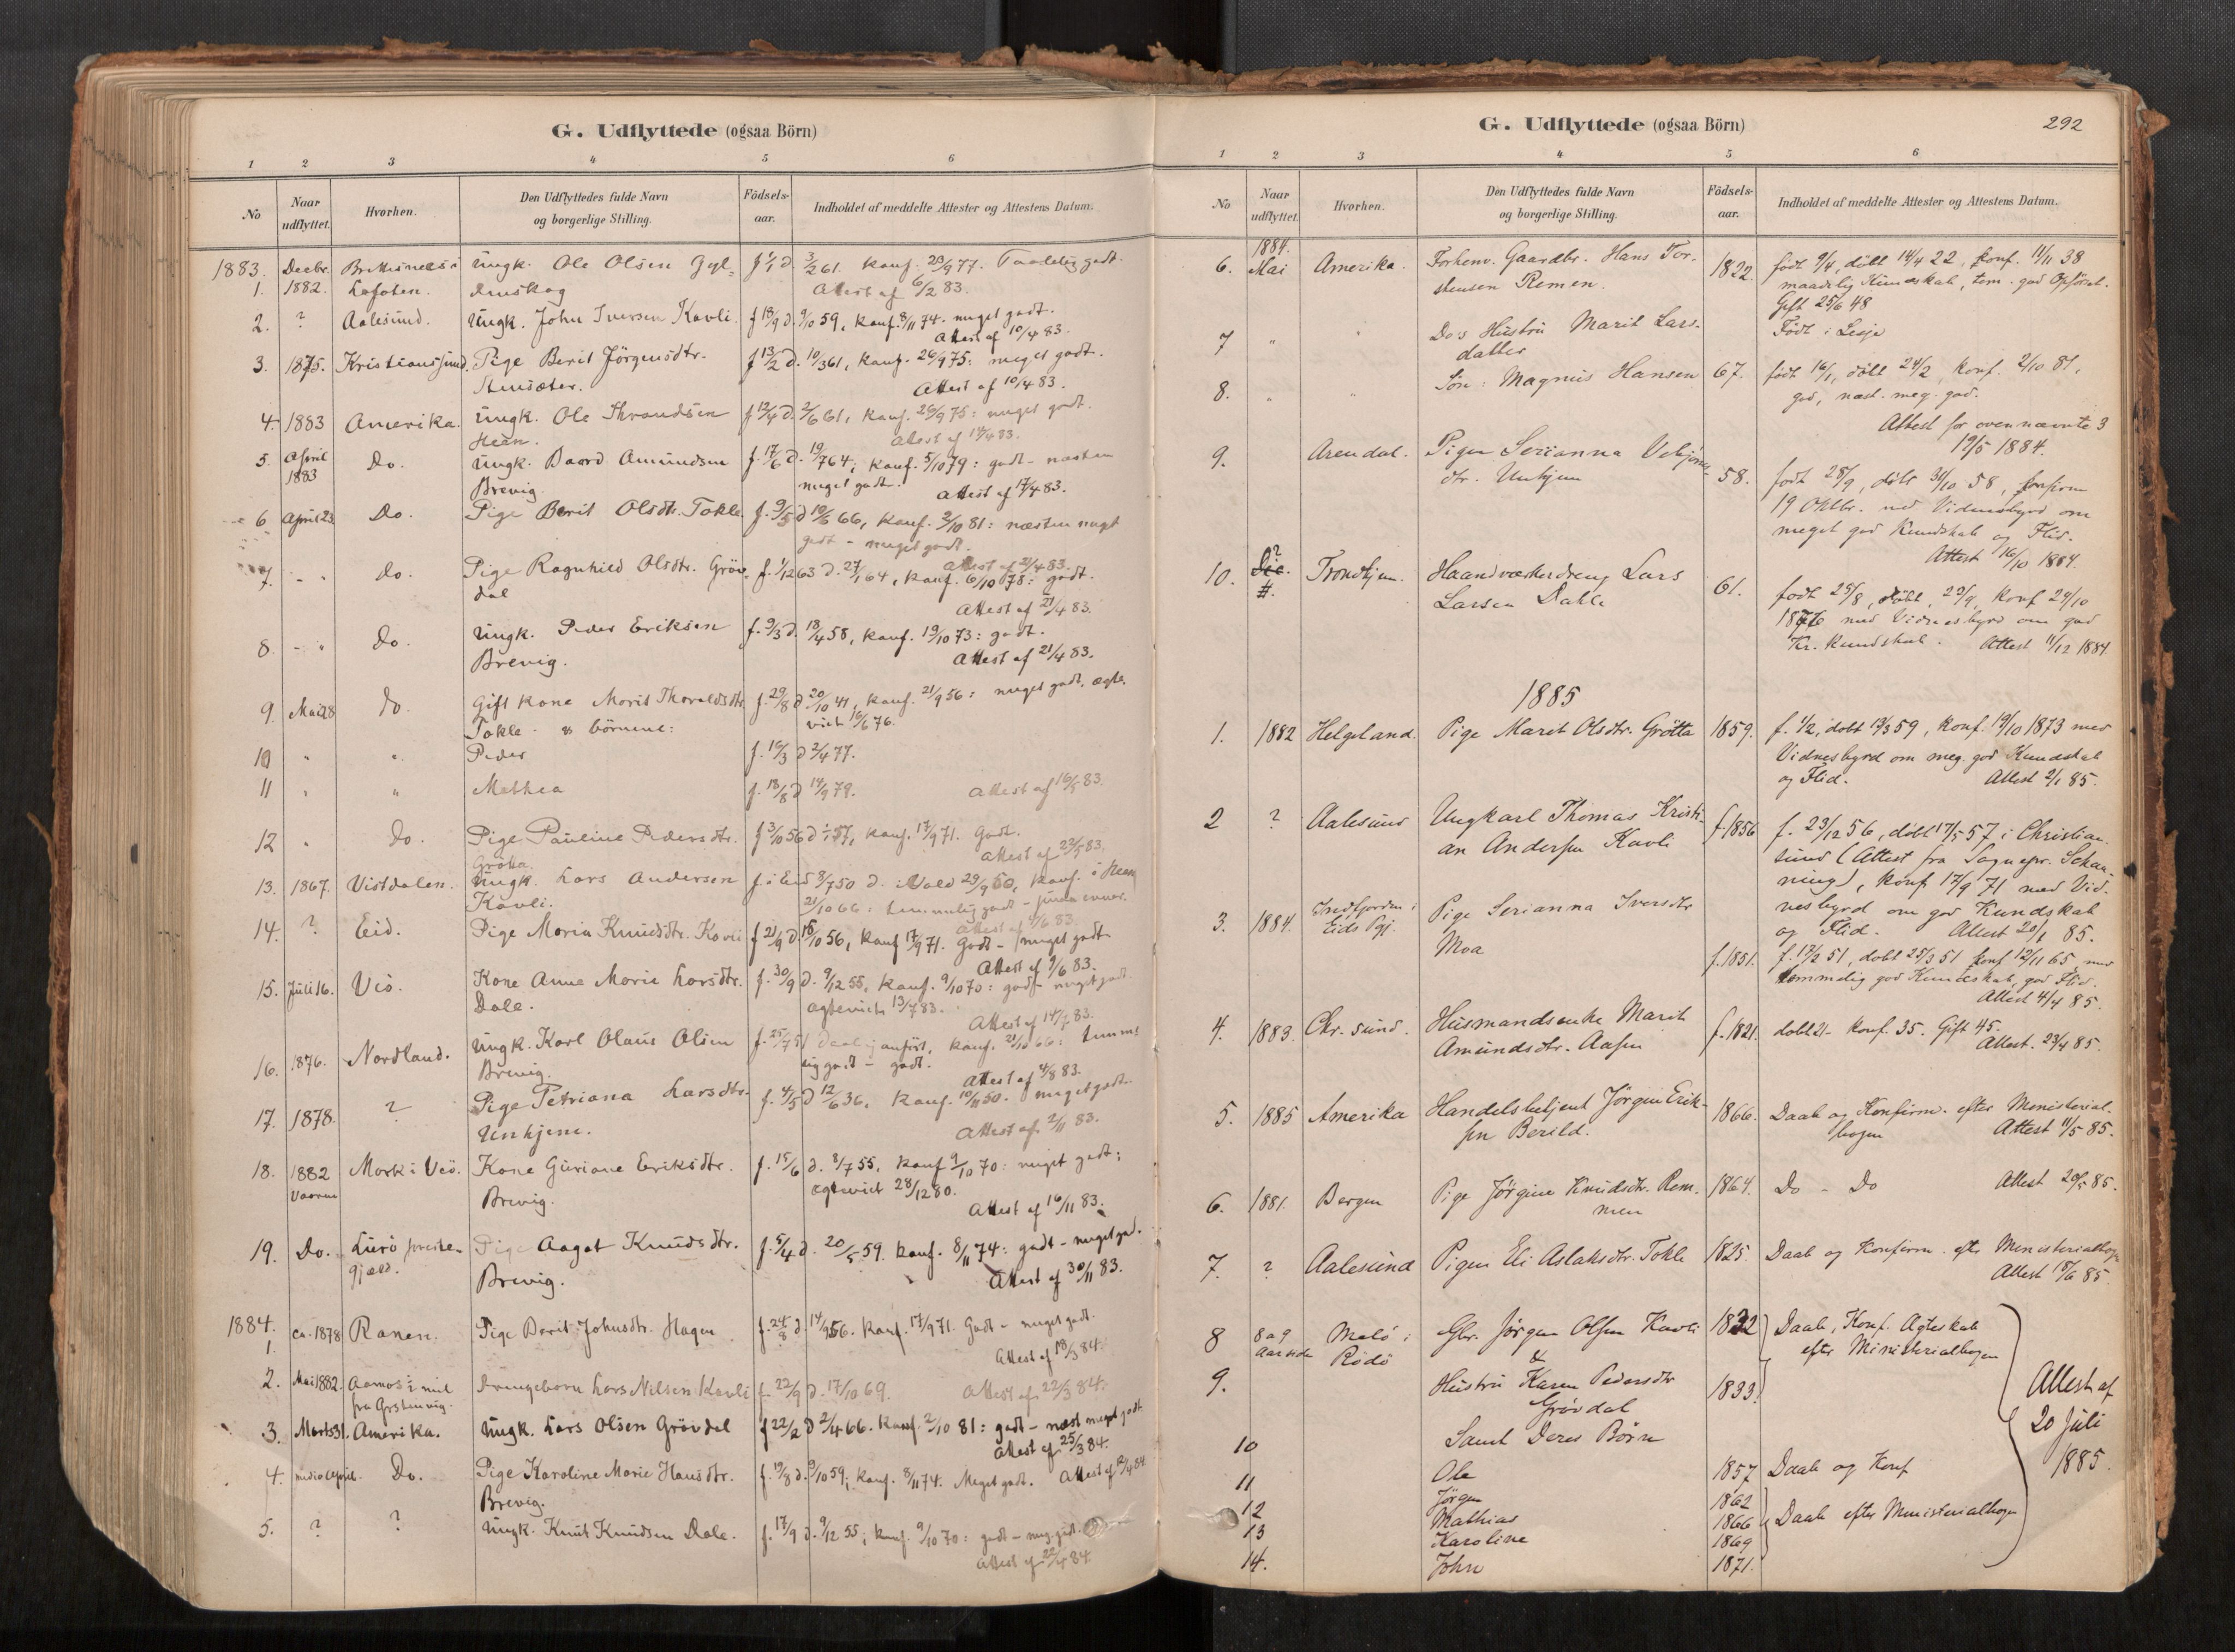 G. Udflyttede (ogsaa Börn)
1 2 3 4 5 6
No Naar udflyttet. Hvorhen. Den Udflyttedes fulde Navn og borgerlige Stilling. Födsels-aar. Indholdet af meddelte Attester og Attestens Datum.
1883. Decbr. Ungk. Ole Olsen Gyl= f 1/1 d. 3/2 61. konf. 23/9 77. Taalelig godt.
1. 1882. Lofoten. Attest af 6/2 83.
2. ? Aalesund. Ungk. John Iversen Kavli. f 18/9 d. 9/10 59, konf. 8/11 74. meget godt.
Attest af 10/4 83.
3. 1875. Kristianssund. Pige Berit Jörgensdtr. f 13/2 d. 10/3 61, konf. 26/9 75: meget godt.
Stensæter. Attest af 10/4 83.
4. 1883 Amerika. Ungk. Ole Thrandsen f 12/4 d. 2/6 61, konf. 26/9 75: meget godt.
Heen. Attest af 14/4 83.
5. April Do. Ungk. Baard Amundsen f. 17/6 d. 19/7 64; konf. 5/10 79: godt - næsten
1883 Brevig meget godt. Attest af 17/4 83.
6 April 23 Do. Pige Berit Olsdtr. Tokle. f. 9/5 d 10/6 66, konf. 2/10 81: næsten meget
godt - meget godt.
Attest af 21/4 83.
7. - " do. Pige Ragnhild Olsdtr. Gröv= f. 1/12 63 d. 27/1 64, konf. 6/10 78: godt.
dal Attest af 21/4 83.
8. - " do. Ungk. Peder Eriksen f. 9/3 d. 18/4 58, konf. 19/10 73: godt.
Brevig. Attest af 21/4 83.
9. Mai 28 do. Gift Kone Marit Thoraldsdtr. f. 29/8 d. 20/10 41, konf. 21/9 56: meget godt, ægte.
Tokle - & börnene: viet 16/6 76.
10 " " Peder f. 16/3 d 2/4 77.
11 " " Mathea f. 18/8 d 14/9 79. Attest af 16/5 83.
12 " do. Pige Pauline Pedersdtr. f 3/10 56 d 1/1 57, konf. 17/9 71. Godt.
Grötta. Attest af 23/5 83.
13. 1867. Vistdalen. Ungk. Lars Andersen f. i Eid 8/7 50 d. i Vold 29/9 50, konf. i Heen
Kavli. 21/10 66: temmelig godt
14. ? Eid. Pige Maria Knudsdtr. Kavli f 21/9 d. 18/10 56, konf 17/9 71. Godt - meget godt
Attest af 9/6 83.
15. Juli 16. Veö. Kone Anne Marie Larsdtr. f. 30/9 d. 9/12 55, konf. 9/10 70: godt - meget godt.
Dale. ægteviet 13/7 83.
Attest af 14/7 83.
16. 1876. Nordland. Ungk. Karl Olaus Olsen f. 25/7 51 Daab ej anfört, konf. 21/10 66: temme
Brevig. lig godt - godt.
Attest af 4/8 83.
17. 1878. ? Pige Petriana Larsdtr. f. 4/5 d 12/6 36, konf. 10/11 50. meget godt.
Unhjem. Attest af. 2/11 83.
18. 1882 Mork i Veö. Kone Guriane Eriksdtr. f. 15/6 d. 8/7 55, konf 9/10 70: meget godt;
Vaaren Brevig. ægteviet 28/12 80.
Attest af 16/11 83.
19. Do. Lurö præste- Pige Aagot Knudsdtr. f. 5/4 d. 20/5 59. konf. 8/11 74: godt - meget god.
gjæld. Brevig. Attest af 30/11 83.
1884. ca. 1878 Ranen. Pige Berit Johnsdtr. Hagen f. 24/8 d. 14/9 56. konf. 17/9 71. Godt - meget godt.
1. Attest af 18/3 84.
2. Mai 1882. Drengebarn Lars Nilsen Kavli f. 22/9 d. 17/10 69. Attest af 22/3 84.
3. Marts 31. Amerika. Ungk. Lars Olsen Grövdal f 22/2 d 2/4 66. Konf. 2/10 81: godt - næst meget godt.
Attest af 25/3 84.
4. medio April. Do. Pige Karoline Marie Hansdtr. f. 19/8 d. 9/10 59; konf. 8/11 74. Meget godt. Attest af 12/4 84
Brevig.
5. ? ? Ungk. Knut Knudsen Dale. f. 17/9 d. 9/12 55; konf. 9/10 70: godt - meg. godt.
Attest af 22/4 84
G. Udflyttede (ogsaa Börn) 292
1 2 3 4 5 6
No Naar udflyttet. Hvorhen. Den Udflyttedes fulde Navn og borgerlige Stilling. Födsels-aar. Indholdet af meddelte Attester og Attestens Datum.
1884.
6. Mai Amerika. Forhenv. Gaardbr. Hans Tor- 1822. født 9/4, døbt 14/4 22, konf. 11/11 38
stensen Remen. maadelig Kundskab, tem. god Opførsel.
Gift 25/6 48
7 " " Do's Hustru Marit Lars- Født i Lesje
datter
8. " " Søn: Magnus Hansen 67. født 16/1, døbt 24/2, konf. 2/10 81,
god, næst. meg. god.
Attest for ovennævnte 3
19/5 1884.
9. Arendal. Pigen Serianna Vebjørns-
dtr. Unhjem 58. født 28/9, døbt 31/10 58, konfirm
19 Oktbr. med Vidnesbyrd om
meget god Kundskab og Flid.
Attest 16/10 1884.
10. ? Trondhjem. Haandværkerdreng Lars
Larsen Dahle 61. født 25/8, døbt, 29/9, Konf 24/10
1876 med Vidnesbyrd om god
Kr. kundskab. Attest 11/12 1884.
1885
1. 1882 Helgeland. Pige Marit Olsdtr. Grötta 1859. f. 1/2, døbt 13/3 59, konf. 19/10 1873 med
Vidnesbyrd om meg. god Kundskab
og Flid. Attest 2/1 85.
2 ? Aalesund Ungkarl Thomas Kristi-
an Andersen Kavli f. 1856 f. 23/12 56, døbt 17/5 57 i Christian-
sund (Attest fra Sognepr. Schan-
ning), konf 17/9 71 med Vid-
nesbyrd om god Kundskab
og Flid. Attest 20/1 85.
3. 1884. Indfjorden i Pige Serianna Iversdtr
Eids Pgj. Moa f. 1851. f. 13/2 51, døbt 25/3 51 konf 12/11 65 med
temmelig god Kundskab, god Flid.
Attest 4/4 85
4. 1883. Chr. sund. Husmandsenke Marit
Amundsdtr. Aasen f. 1821. døbt 21- konf. 35. Gift 45.
Attest. 23/4 85.
5. 1885 Amerika Handelsbetjent Jörgen Erik-
sen Berild. 1866. Daab og Konfirm. efter Ministerial-
bogen Attest 11/5 85.
6. 1881. Bergen Pige Jörgine Knudsdtr. Rem-
men 1864. Do - Do Attest 20/5 85.
7. ? Aalesund Pigen Eli Aslaksdtr. Tokle 1825. Daab og Konfirm. efter Ministerialbogen
Attest 18/6 85.
8 8 a 9 Melö i Gbr. Jörgen Olsen Kavli 1832 Daab, Konf. Ægteskab
Aar siden Rödö & efter Ministerialbogen
9. Hustru Karen Pedersdtr 1833. Attest af
Grövdal 20 Juli
Samt Deres Börn 1885.
10 Ole 1857 Daab og Konf
11 Jörgen 1862
12 Mathias 1866 Daab efter Ministerialbogen
13 Karoline 1869
14. John 1871.